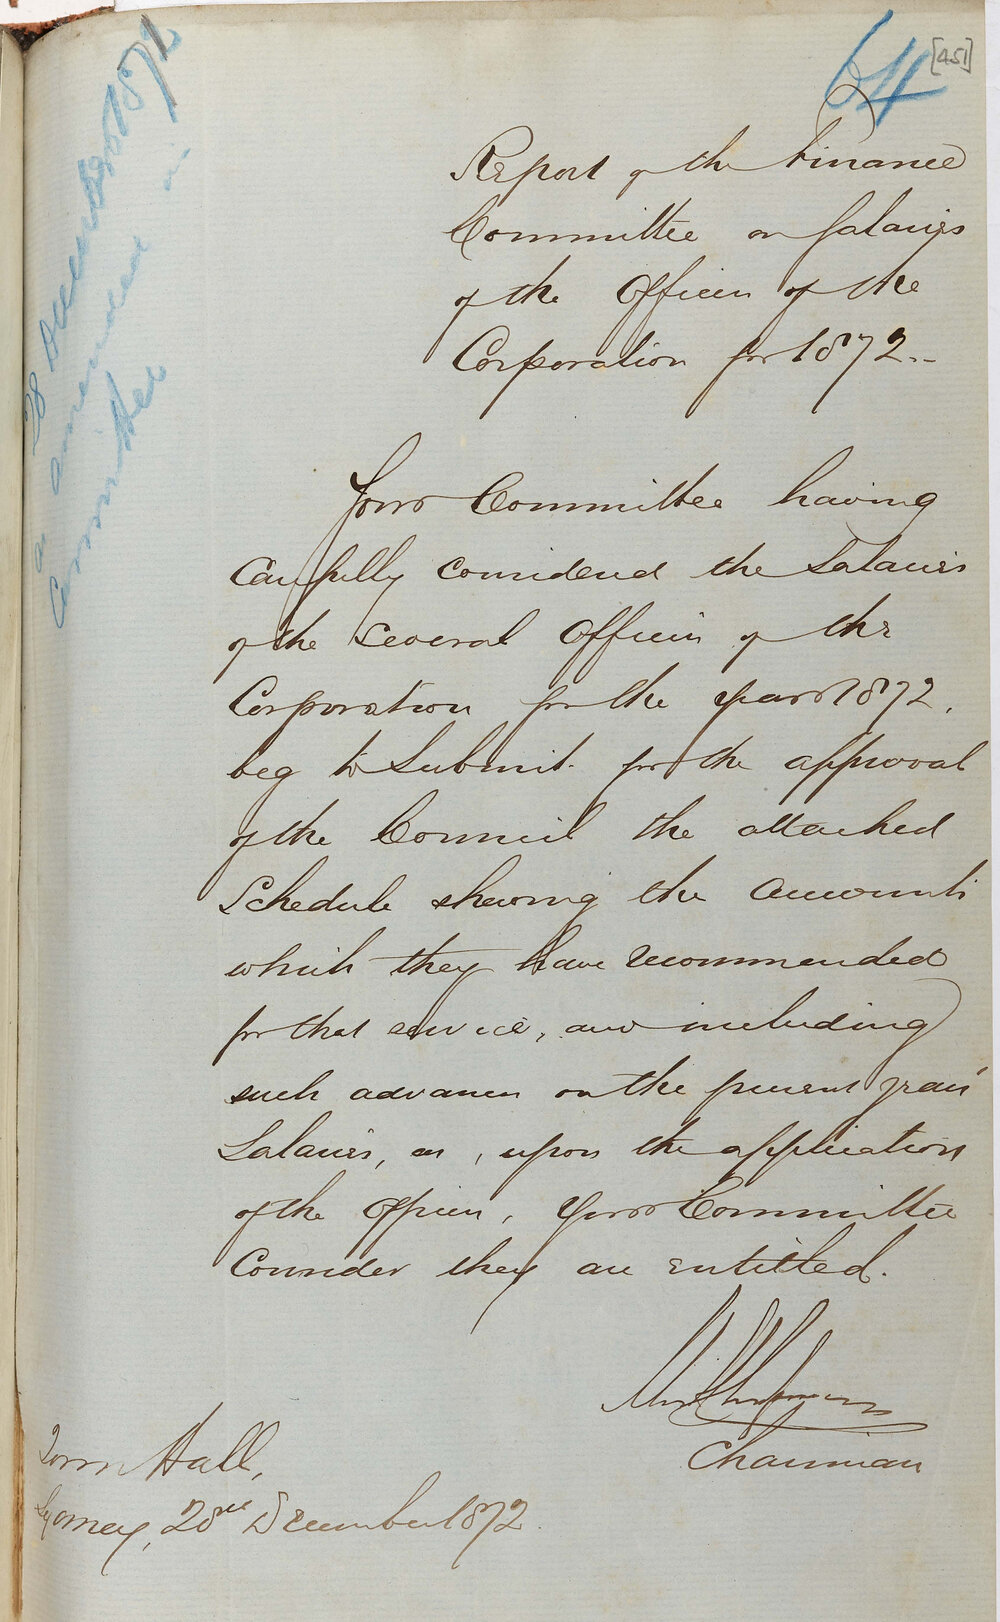 64
[451]
28 December 1872
as amended in
Committee
Report of the Finance
Committee on Salaries
of the Officers of the
Corporation for 1872.-
Your Committee having
carefully considered the Salaries
of the several Officers of the
Corporation for the year 1872,
beg to submit for the approval
of the Council the attached
Schedule shewing the amounts
which they have recommended
for that service, and including
such advances on the present years'
Salaries, as, upon the application
of the Officers, your Committee
consider they are entitled.
Chairman
Town Hall,
Sydney, 28th December 1872.